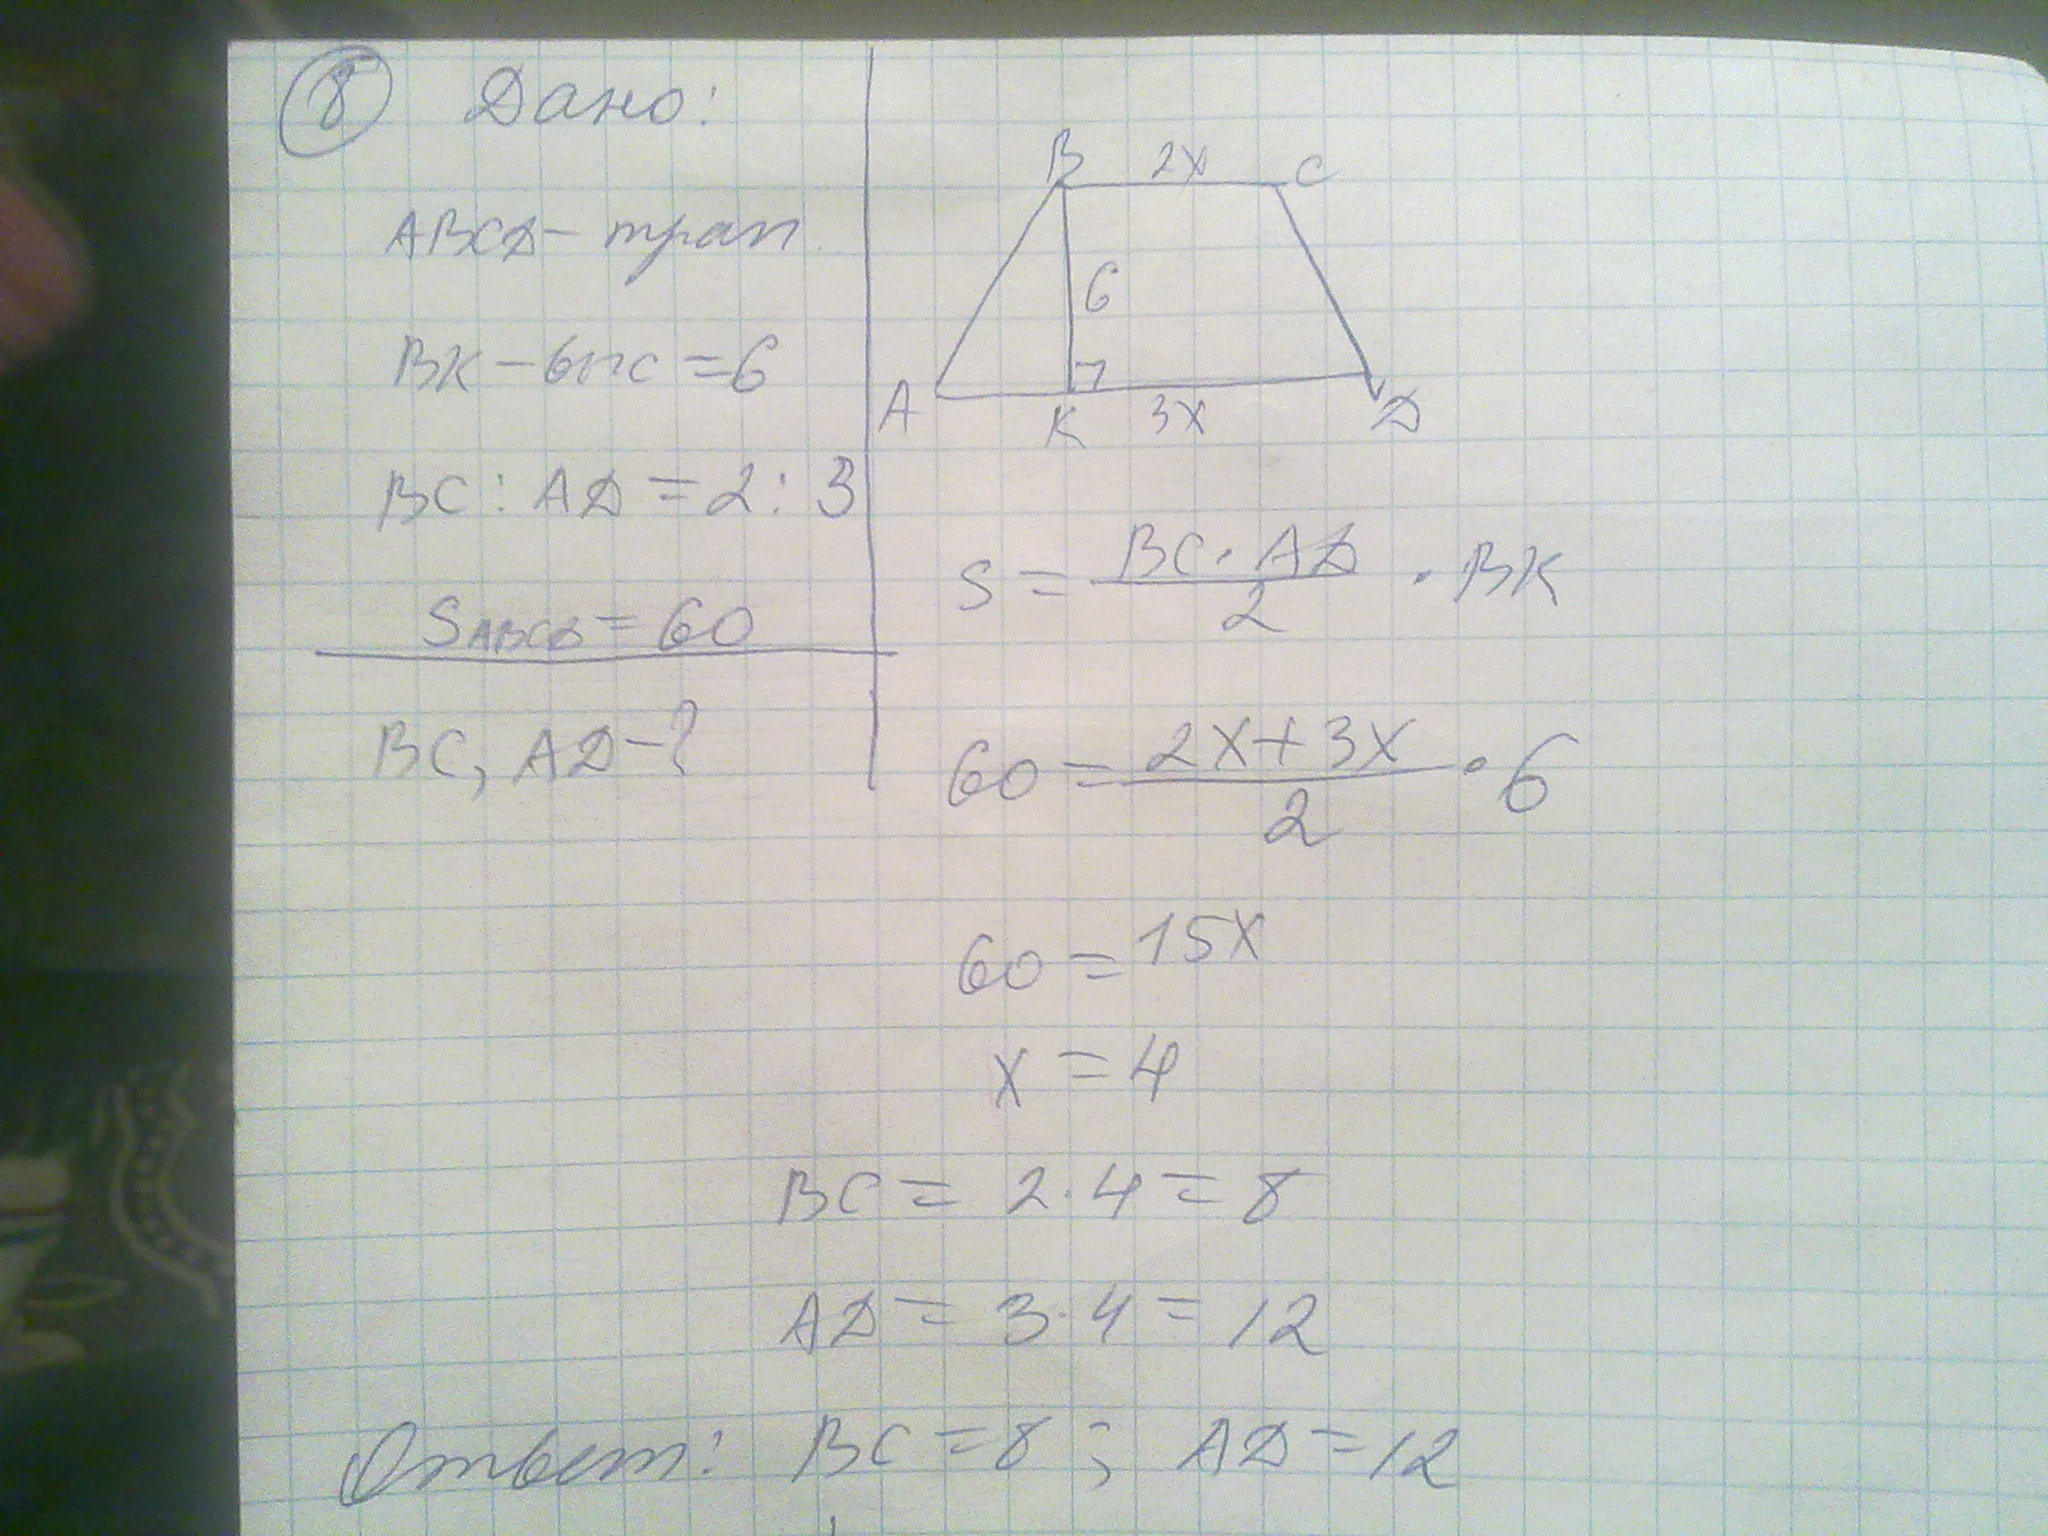 8 Дано:
ABCD - трап.
BK - выс = 6
BC : AD = 2 : 3
SABCD = 60
BC, AD - ?
B 2x C
6
A K 3x D
S = BC · AD / 2 · BK
60 = 2x + 3x / 2 · 6
60 = 15x
x = 4
BC = 2 · 4 = 8
AD = 3 · 4 = 12
Ответ: BC = 8 ; AD = 12